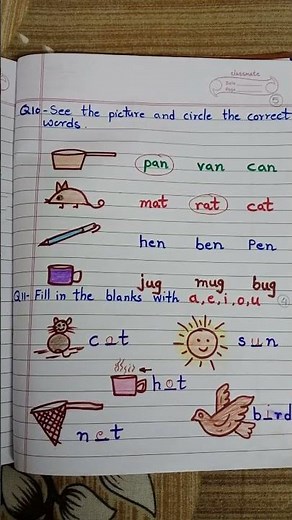 classmate
Date
Page
5
Q10-See the picture and circle the correct
words.
pan van can
mat rat cat
hen ben Pen
jug mug bug
Q11-Fill in the blanks with a,e,i,o,u 4
cat sun
hot
net bird